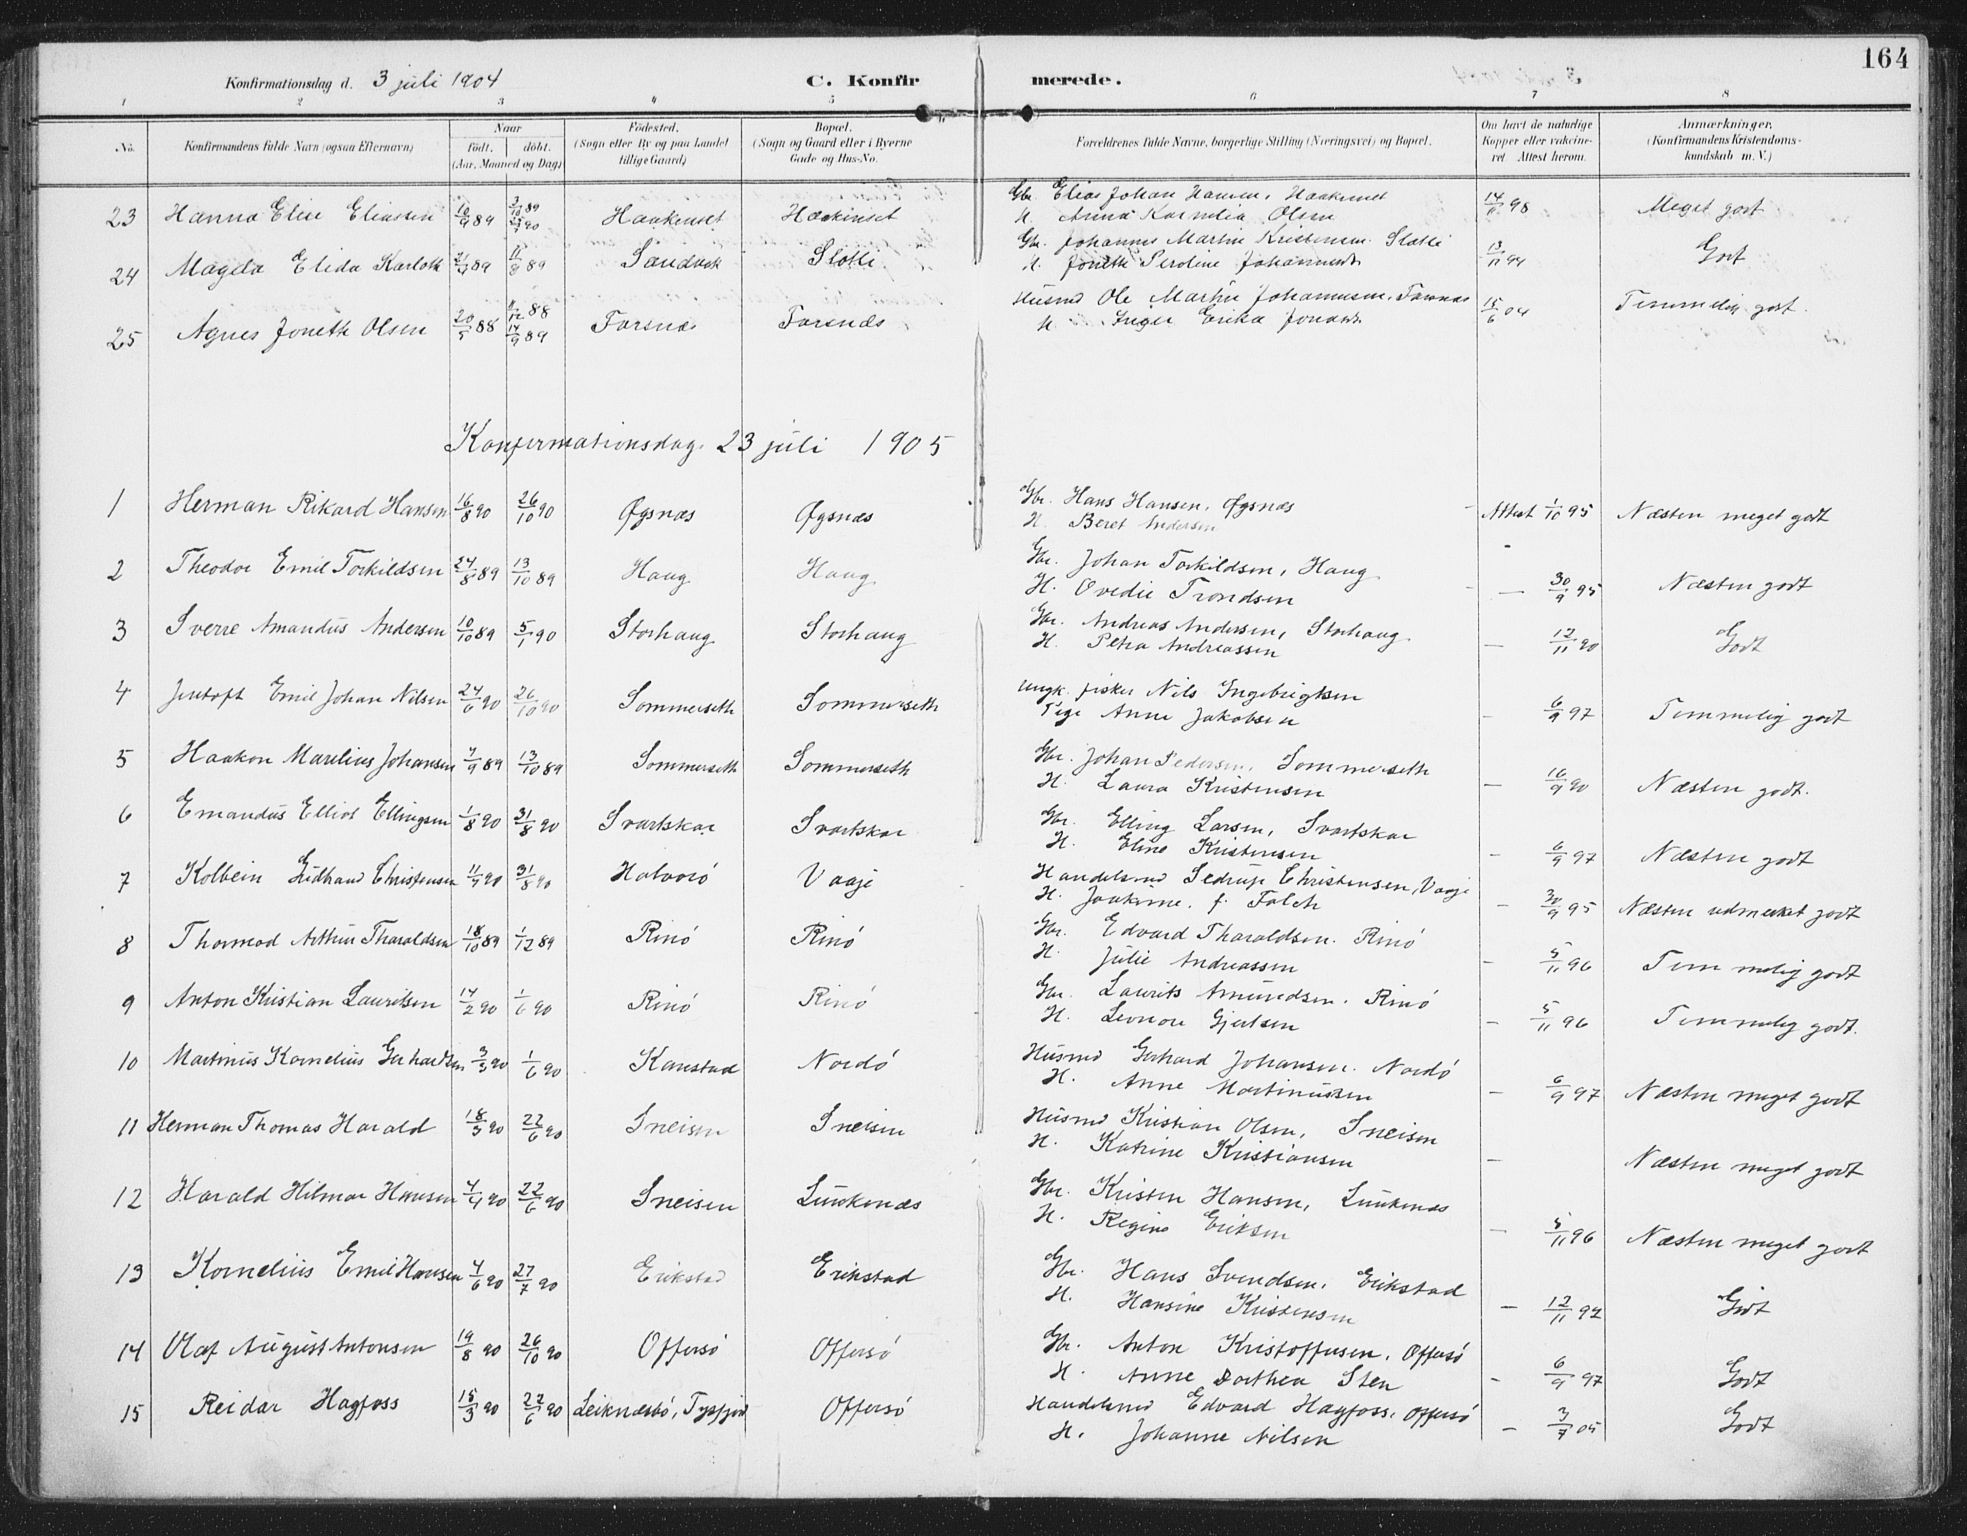 164
Konfirmationsdag d. 3 juli 1904 C. Konfirmerede.
1 2 3 4 5 6 7 8
No. Konfirmandens fulde Navn (ogsaa Efternavn) Naar født. døbt. (Aar, Maaned og Dag) Fødested. (Sogn eller By og paa Landet tillige Gaard) Bopæl. (Sogn og Gaard eller i Byerne Gade og Hus-No. Forældrenes fulde Navne, borgerlige Stilling (Næringsvei) og Bopæl. Om havt de naturlige Kopper eller vakcineret. Attest herom. Anmærkninger. (Konfirmandens Kristendomskundskab m. V.)
23 Hanna Elise Eliassen 89 89 90 Gbr. Elias Johan 14/11 98 Meget godt
H. Anna Kornelia Olsen
24 Magda Elida Karlotte 89 11/8 89 Sandvik Slotti Gbr. Johannes Martin Kristensen Slotti 13/11 94 Godt
H. Joneth Peroline
25 Agnes Joneth Olsen 88 88 14/9 89 Farsnæs Farsnæs Husmd Ole Martin Johannesen, 15/6 04 Temmelig godt.
H. Inger Erika
Konfirmationsdag. 23 juli 1905
1 Herman Rikard Hansen 16/8 90 26/10 90 Øgsnæs Øgsnæs Gbr. Hans Hansen, Øgsnæs Attest 1/10 95 Næsten meget godt
H. Beret Andersen
2 Theodor Emil Torkildsen 24/8 89 13/10 89 Haug Haug Gbr. Johan Torkildsen, Haug — 30/9 95 Næsten godt
H. Ovedie Trondsen
3 Sverre Amandus Andersen 10/10 89 5/1 90 Storhaug Storhaug Gbr. Andreas Andersen, Storhaug — 12/11 90 Godt
H. Petra Andreassen
4 Jentoft Emil Johan Nilsen 24/6 90 26/10 90 Sommerseth Sommerseth Ungk. fisker Nils Ingebrigtsen — 6/9 97 Temmelig godt
Pige Anne Jakobsen
5 Haakon Marelius Johansen 7/9 89 13/10 89 Sommerseth Sommerseth Gbr. Johan Pedersen, Sommerseth — 16/9 90 Næsten godt.
H. Laura Kristensen
6 Emandus Elliot Ellingsen 1/8 90 31/8 90 Svartskar Svartskar Gbr. Elling Larsen, Svartskar — 6/9 97 Næsten godt
H. Eline Kristensen
7 Kolbein Christensen 90 31/8 90 Halvorö Vaaje Handelsmd Christensen, Vaaje — 30/9 95 Næsten udmerket godt
H. Joakime. f. Falch
8 Thormod Arthur Tharaldsen 18/10 89 1/12 89 Rinö Rinö Gbr. Edvard Tharaldsen. Rinö — 5/11 96 Temmelig godt
H. Julie Andreassen
9 Anton Kristian Lauritsen 14/2 90 1/6 90 Rinö Rinö Gbr. Laurits Amundsen. Rinö — 5/11 96 Temmelig godt.
H. Leonore Gjertsen
10 Martinus Kornelius Gerhardsen 3/3 90 1/6 90 Kanstad Nordö Husmd Gerhard Johansen. Nordö — 6/9 97 Næsten meget godt
H. Anne Martinussen
11 Herman Thomas Harald 18/3 90 22/6 90 Sneisen Sneisen Husmd Kristian Olsen, Sneisen — Næsten meget godt
H. Katrine Kristiansen
12 Harald Hilmar Hansen 4/4 90 22/6 90 Sneisen Luukenæs Gbr. Kristen Hansen, Luukenæs — 5/11 96 Næsten meget godt
H. Regine Eriksen
13 Kornelius Emil Hansen 4/6 90 27/7 90 Erikstad Erikstad Gbr. Hans Svendsen, Erikstad — 12/11 92 Godt
H. Hansine Kristensen
14 Olaf August Antonsen 19/8 90 26/10 90 Offersö Offersö Gbr. Anton Kristoffersen, Offersö — 6/9 97 Godt
H. Anne Dorthea Sten
15 Reidar Hagfoss 15/3 90 22/6 90 Leiknæsbö, Tysfjord Offersö Handelsmd Edvard Hagfoss, Offersö — 3/7 05 Godt
H. Johanne Nilsen